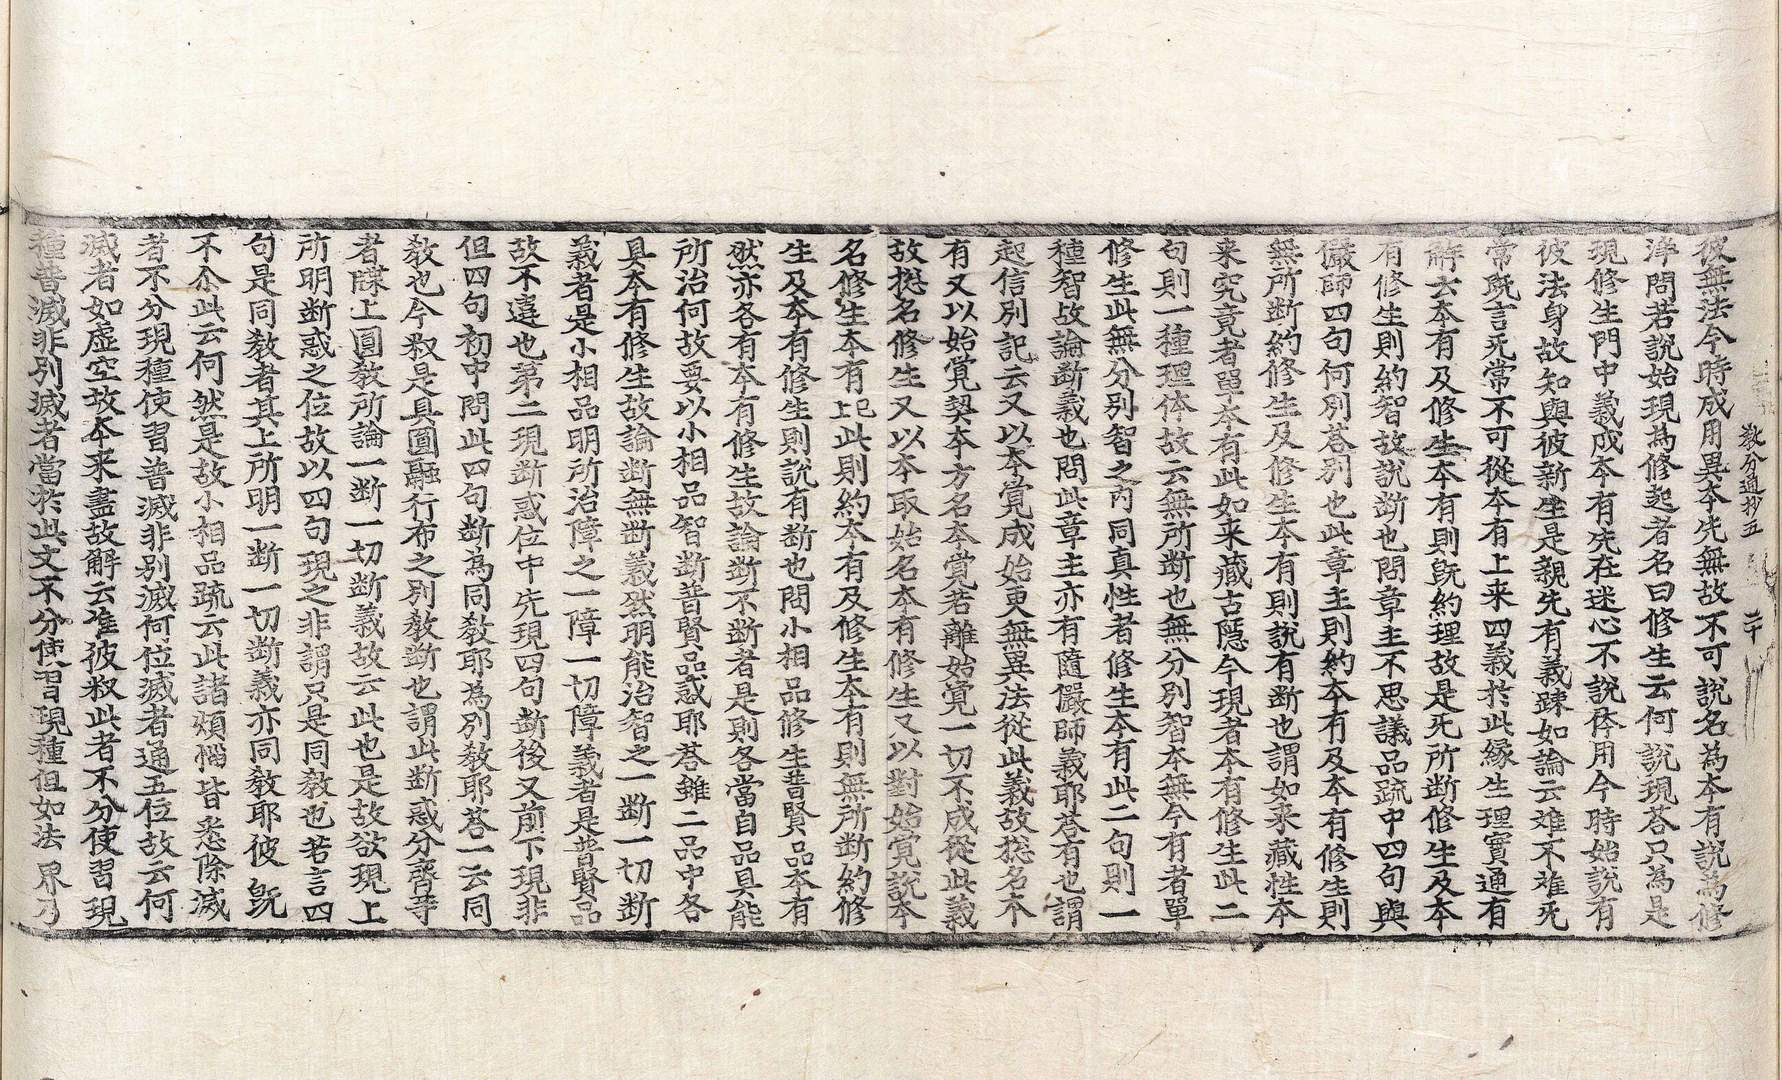 教分通抄五 二十
彼無法今時成用異本先無故不可說名為本有說為修
淨問若說始現為修起者名曰修生云何說現荅只為是
現修生門中義成本有先在迷心不說体用今時始說有
彼法身故知與彼新生是親先有義踈如論云难不难死
常旣言死常不可從本有上来四義於此緣生理實通有
解云本有及修生本有則旣約理故是死所断修生及本
有修生則約智故說断也問章主不思議品䟽中四句與
儼師四句何別荅別也此章主則約本有及本有修生則
無所断約修生及修生本有則說有断也謂如来藏性本
来究竟者單本有此如来藏古隱今現者本有修生此二
句則一種理体故云無所断也無分別智本無今有者單
修生此無分別智之內同真性者修生本有此二句則一
種智故論断義也問此章主亦有隨儼師義耶荅有也謂
起信別記云又以本覺成始更無異法從此義故摠名本
有又以始覺契本方名本覺若離始覺一切不成從此義
故摠名修生又以本取始名本有修生又以對始覺說本
名修生本有上已此則約本有及修生本有則無所断約修
生及本有修生則說有断也問小相品修生普賢品本有
然亦各有本有修生故論断不断者是則各當自品具能
所治何故要以小相品智断普賢品惑耶荅雖二品中各
具本有修生故論断無断義然明能治智之一断一切断
義者是小相品明所治障之一障一切障義者是普賢品
故不違也第二現断惑位中先現四句断後又前下現非
但四句初中問此四句断為同教耶為別教耶荅一云同
教也今叔是具圓融行布之別教断也謂此断惑分齊等
者牒上圓教所論一断一切断義故云此也是故欲現上
所明断惑之位故以四句現之非謂只是同教也若言四
句是同教者其上所明一断一切断義亦同教耶彼旣
不尒此云何然是故小相品䟽云此諸煩惱皆悉除滅
者不分現種使習普滅非别滅何位滅者通五位故云何
滅者如虛空故本来盡故解云准彼叔此者不分使習現
種普滅非別滅者當於此文不分使習現種但如法界乃